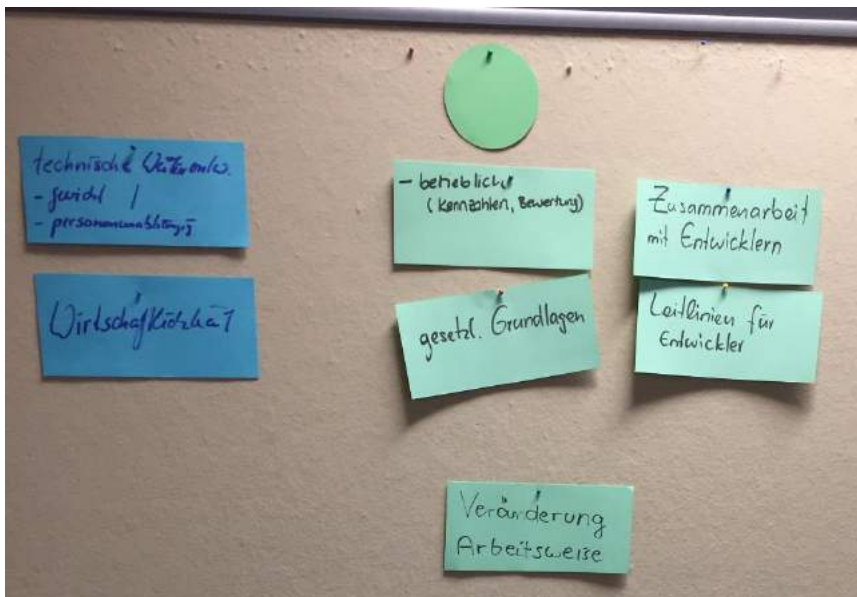 technische Weiterentw.
- 
- personenunabhängig
Wirtschaftlichkeit
- betriebliche
(Kennzahlen, Bewertung)
gesetzl. Grundlagen
Zusammenarbeit
mit Entwicklern
Leitlinien für
Entwickler
Veränderung
Arbeitsweise